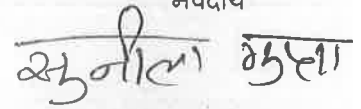 भवदीय
सुनीला गुप्ता